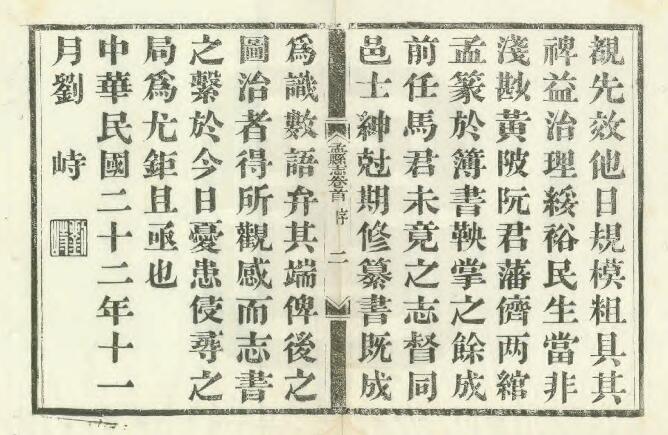 覩先效他日規模粗具其
裨益治理綏裕民生當非
淺尠黃陂阮君藩儕两綰
孟篆於簿書鞅掌之餘成
前任馬君未竟之志督同
邑士紳尅期修纂書既成
孟縣志卷首 序 二
爲識數語弁其端俾後之
圖治者得所觀感而志書
之繫於今日憂患侵尋之
局爲尤鉅且亟也
中華民國二十二年十一
月劉峙